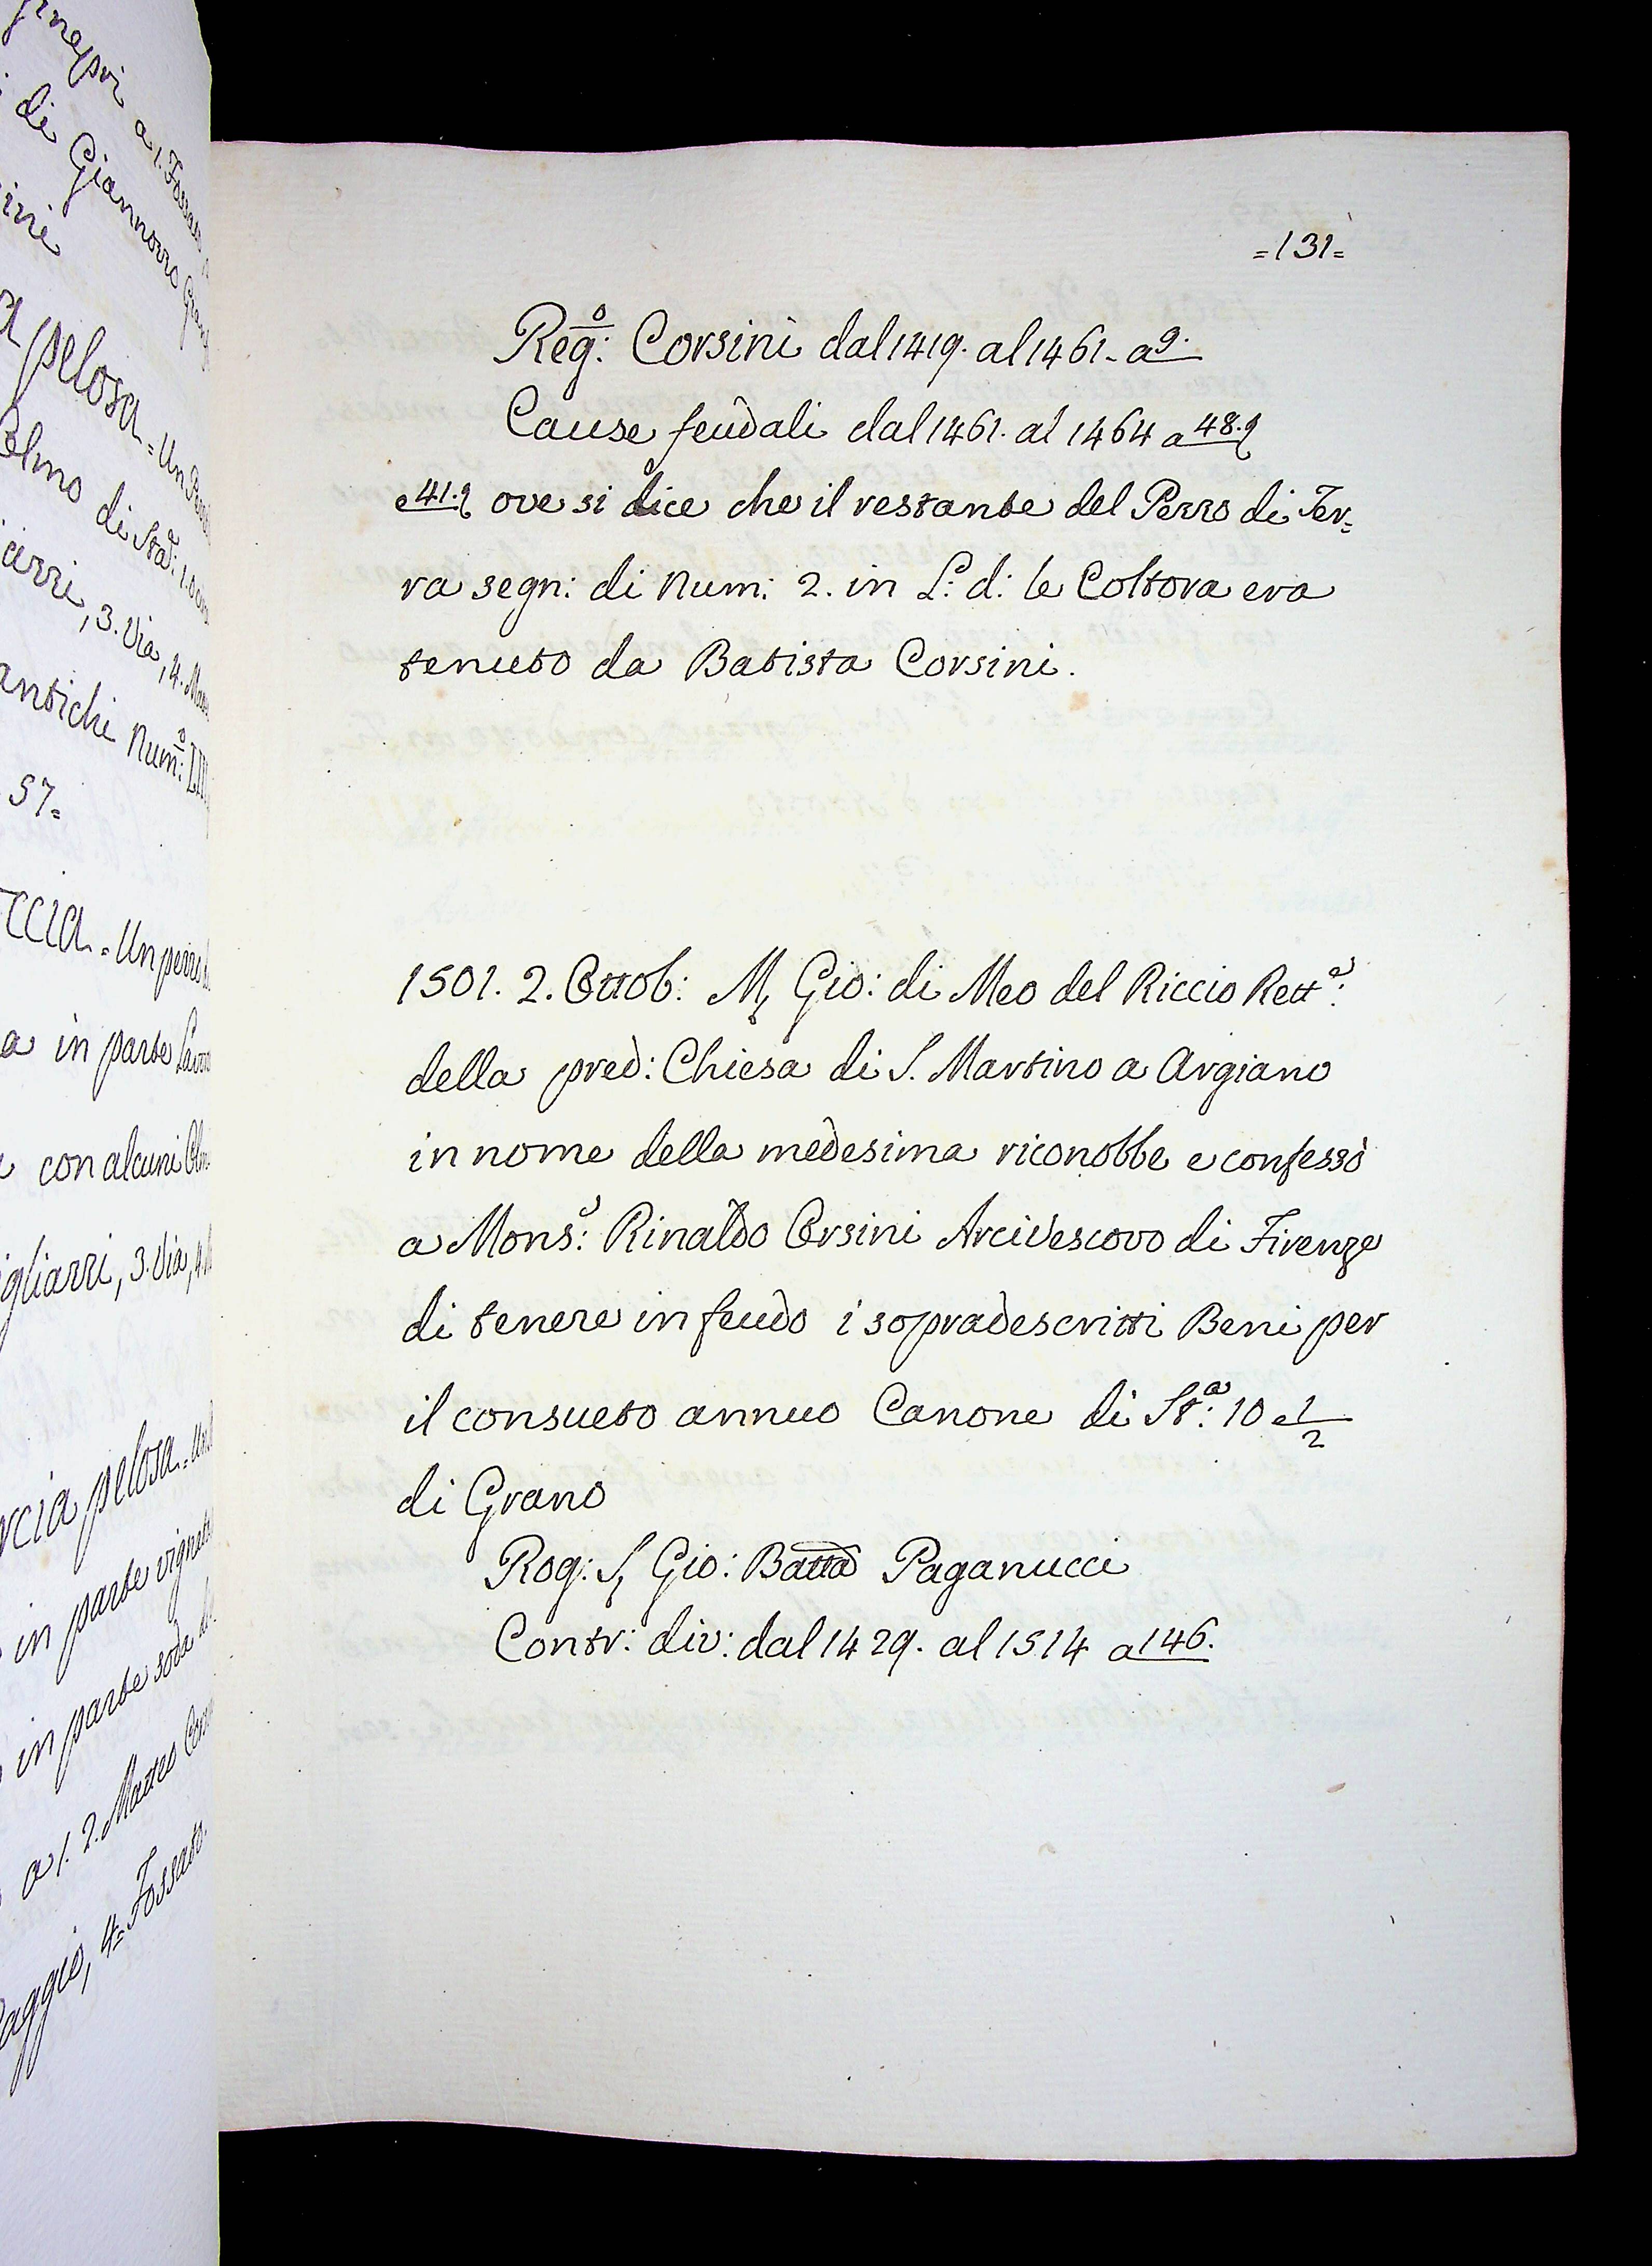 ginepri a 1. Fossato
di Giannozzo
ini
a pelosa = Un
Olmo di Sta: 10
iarri, 3. Via, 4.
antichi Num:o
57=
ccia = Un pezzo
a in parte
con alcuni
igliarri, 3. Via, 4
rcia pelosa =
in parte vignata
in parte soda
a 1. 2. Matteo
aggio, 4= Fossato.
=131=
Reg:o Corsini dal 1419. al 1461. a 9.
Cause feudali dal 1461. al 1464 a 48.
e 41. ove si dice che il restante del Pezzo di Ter=
ra segn: di Num: 2. in L:o d: le Coltora era
tenuto da Batista Corsini.
1501. 2. Ottob: M, Gio: di Meo del Riccio Rett:e
della pred: Chiesa di S. Martino a Argiano
in nome della medesima riconobbe e confessò
a Mons:r Rinaldo Orsini Arcivescovo di Firenze
di tenere in feudo i sopradescritti Beni per
il consueto annuo Canone di St:a 10 e 1/2
di Grano
Rog: S, Gio: Batta Paganucci
Contr: div: dal 1429. al 1514 a 146.